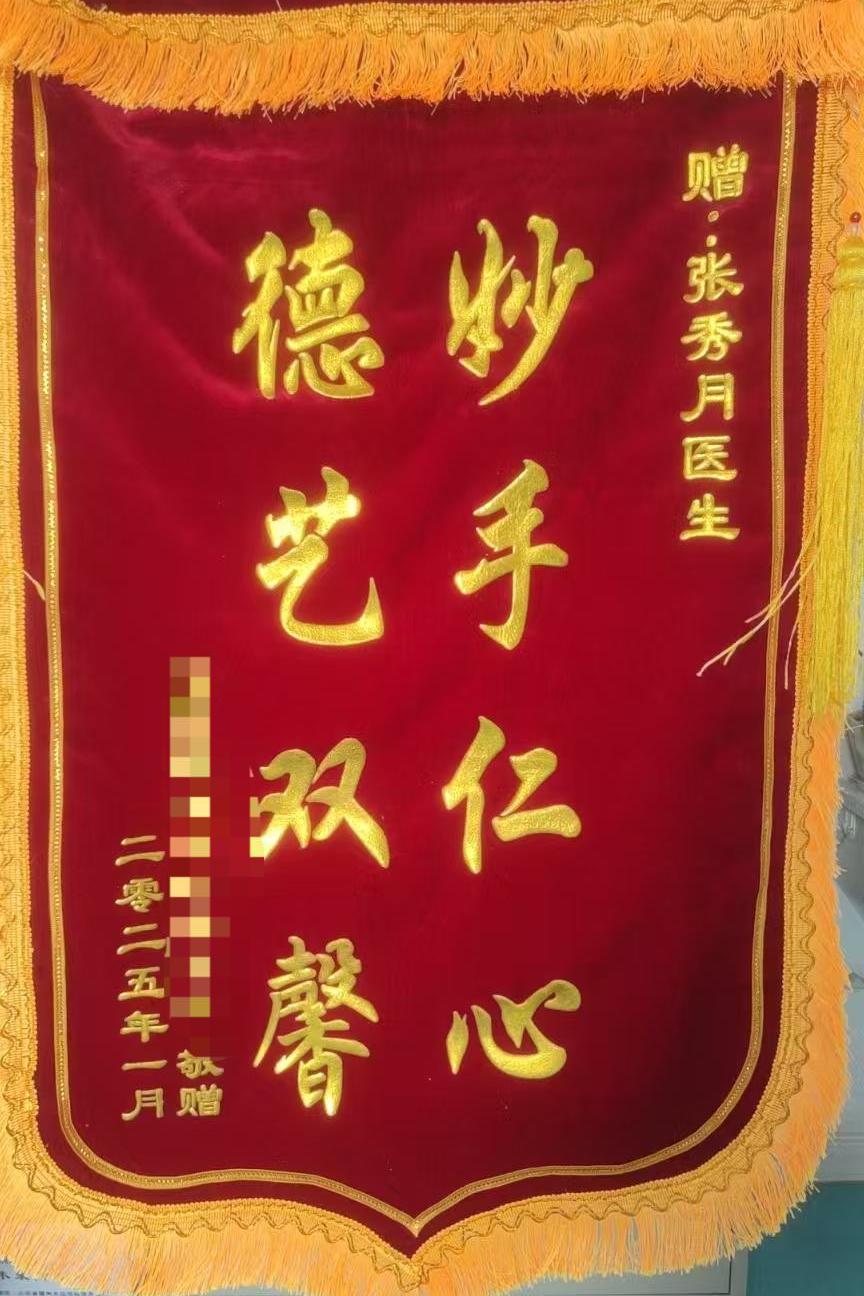 赠：张秀月医生
妙手仁心
德艺双馨
敬赠
二零二五年一月